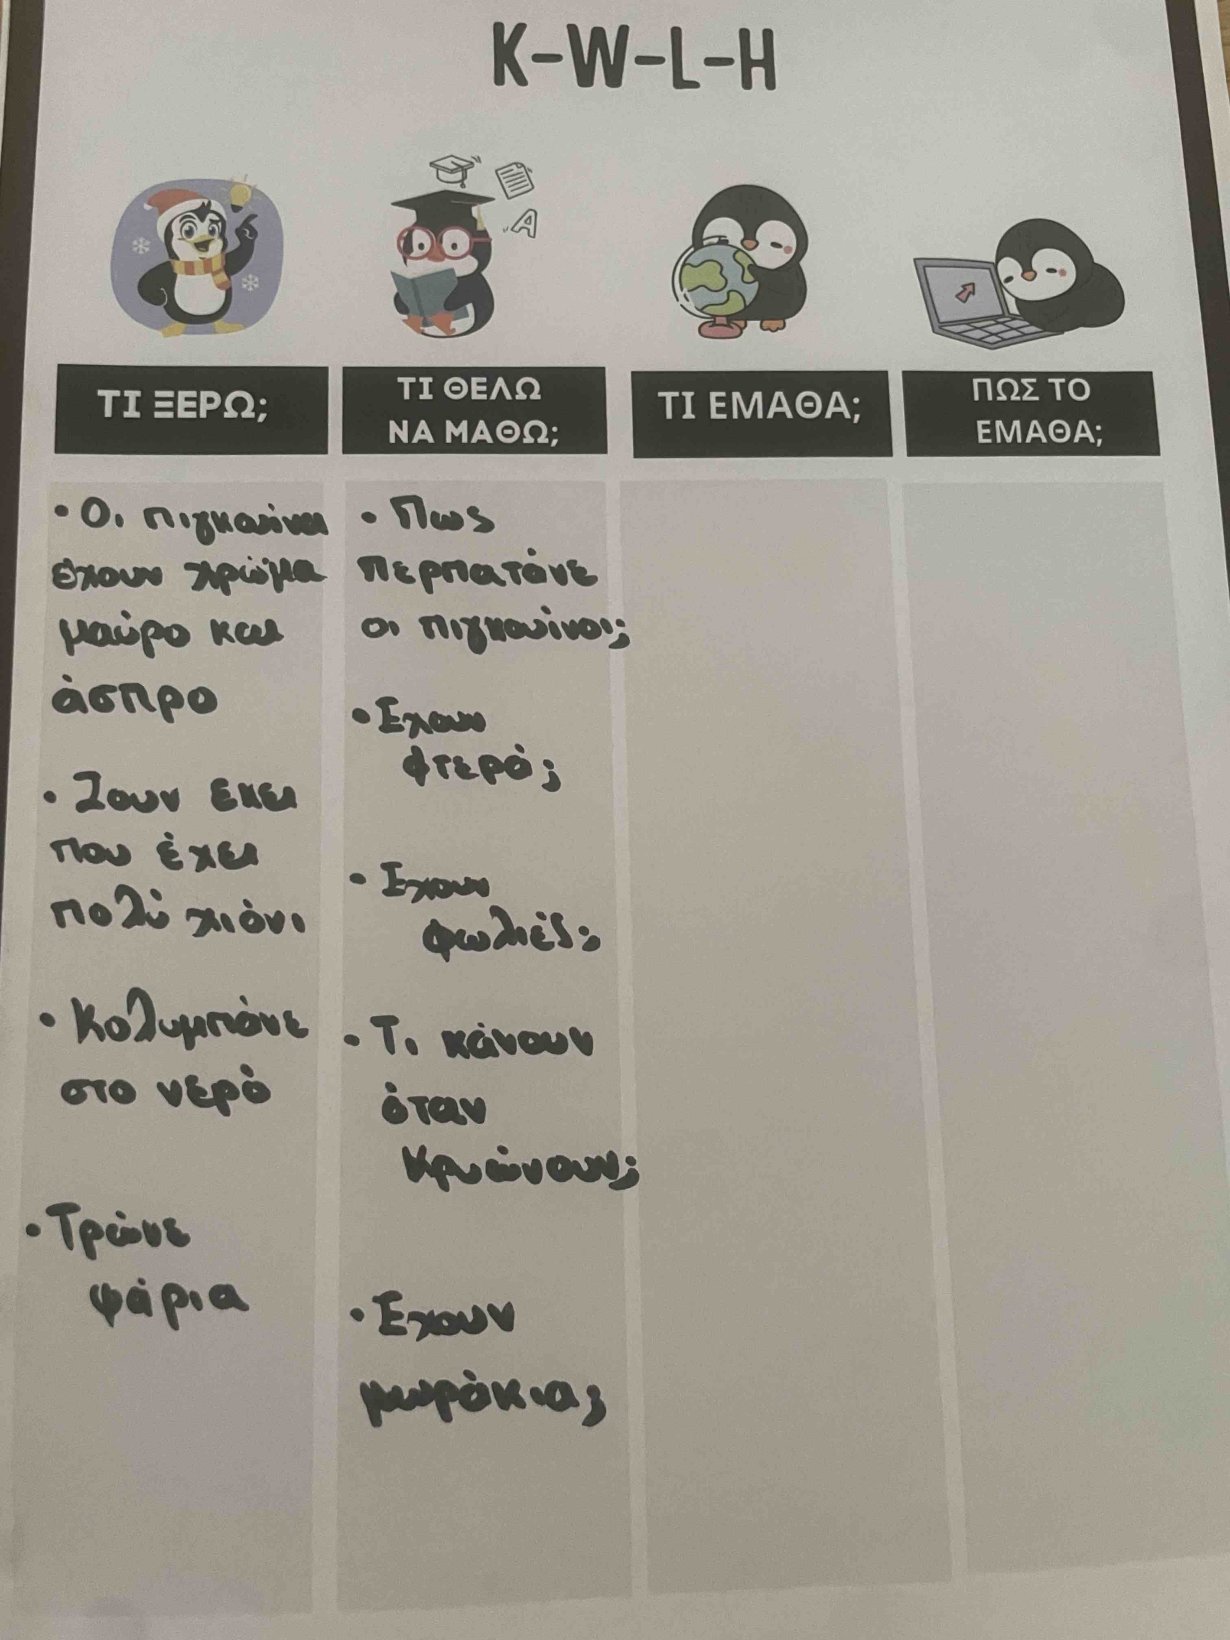 K-W-L-H
A
ΤΙ ΞΕΡΩ;
ΤΙ ΘΕΛΩ
ΝΑ ΜΑΘΩ;
ΤΙ ΕΜΑΘΑ;
ΠΩΣ ΤΟ
ΕΜΑΘΑ;
• Οι πιγκουίνοι
έχουν χρώμα
μαύρο και
άσπρο
• Ζουν εκεί
που έχει
πολύ χιόνι
• Κολυμπάνε
στο νερό
• Τρώνε
ψάρια
• Πως
περπατάνε
οι πιγκουίνοι;
• Έχουν
φτερά;
• Έχουν
φωλιές;
• Τι κάνουν
όταν
κρυώνουν;
• Έχουν
μωράκια;